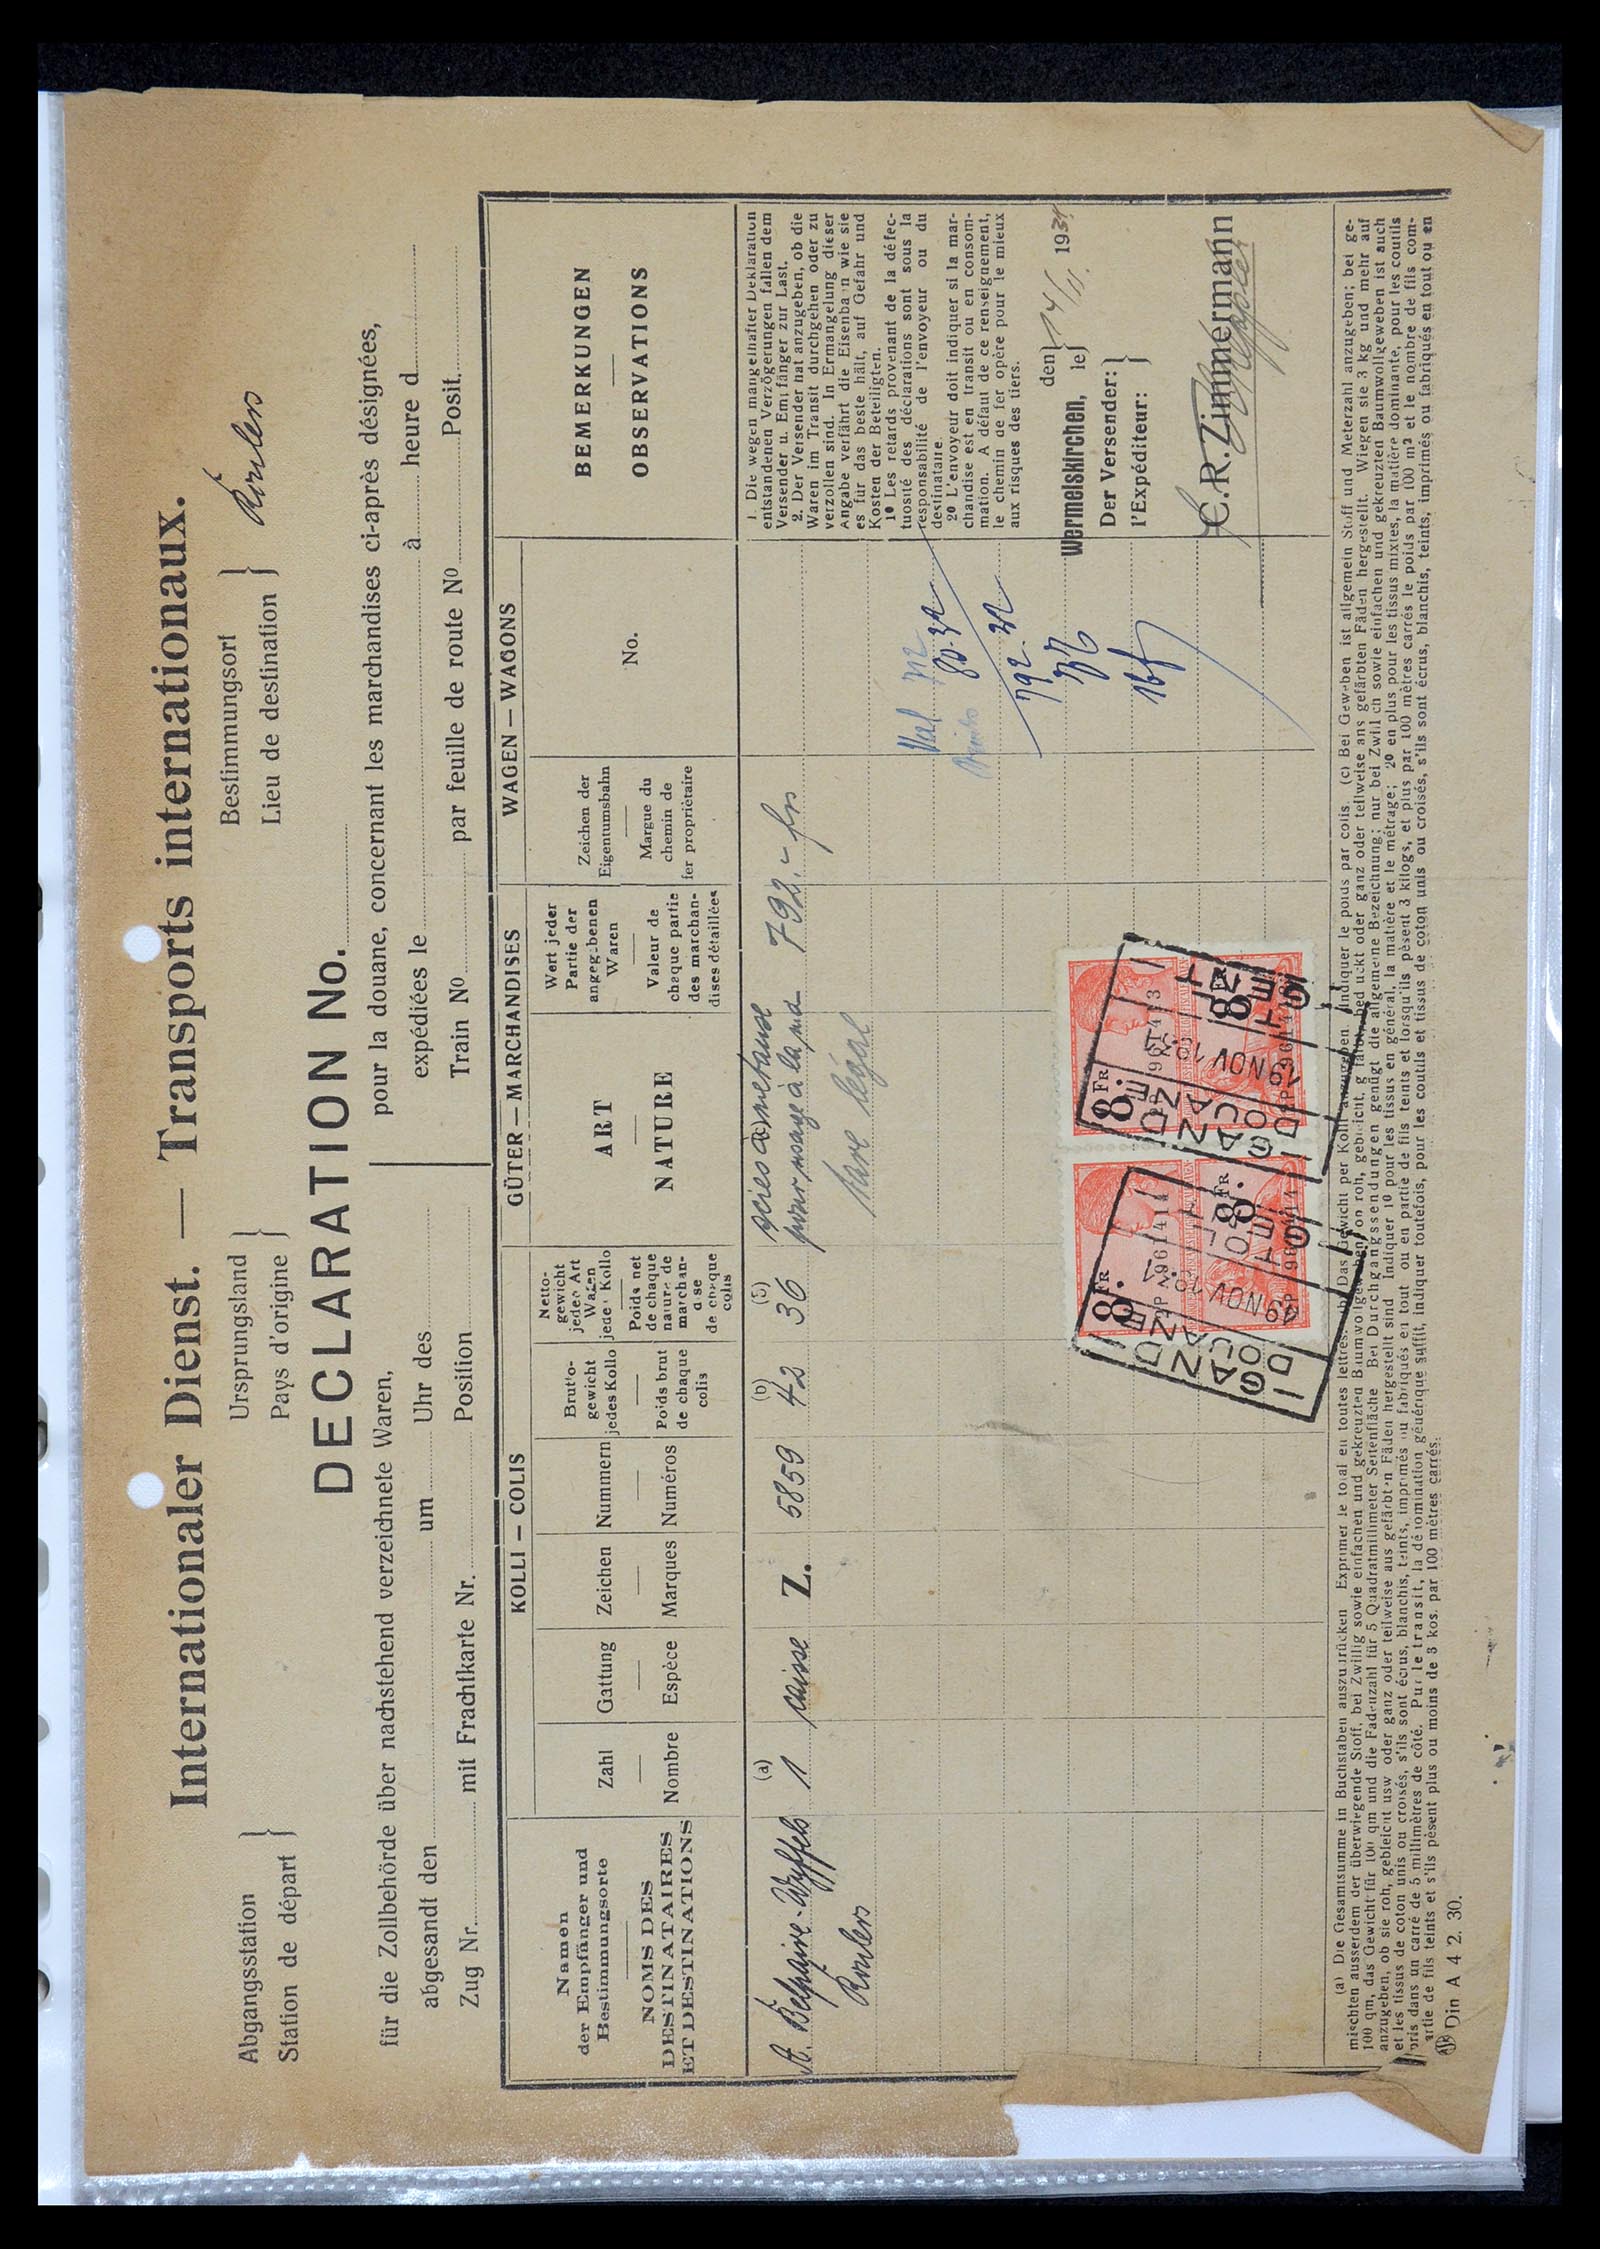 Internationaler Dienst. — Transports internationaux.
Abgangsstation
Station de départ
Ursprungsland
Pays d'origine
Bestimmungsort
Lieu de destination
Roulers
DECLARATION No.
für die Zollbehörde über nachstehend verzeichnete Waren,
abgesandt den um Uhr des
Zug Nr. mit Frachtkarte Nr. Position
pour la douane, concernant les marchandises ci-après désignées,
expédiées le à heure d
Train No par feuille de route No Posit.
KOLLI — COLIS
GÜTER — MARCHANDISES
WAGEN — WAGONS
BEMERKUNGEN
—
OBSERVATIONS
Namen
der Empfänger und
Bestimmungsorte
—
NOMS DES
DESTINATAIRES
ET DESTINATIONS
Zahl
—
Nombre
Gattung
—
Espèce
Zeichen
—
Marques
Nummern
—
Numéros
Brutto-
gewicht
jedes Kollo
—
Poids brut
de chaque
colis
Netto-
gewicht
jeder Art
Waren
jedes Kollo
—
Poids net
de chaque
nature de
marchan-
dise
de chaque
colis
ART
—
NATURE
Wert jeder
Partie der
angegebenen
Waren
—
Valeur de
chaque partie
des marchan-
dises détaillées
Zeichen der
Eigentumsbahn
—
Margue du
chemin de
fer propriétaire
No.
(a) (b) (b)
A. Belpaire-Wyffels 1 caisse Z. 5859 42 36 792.- frs
Roulers
scies à métaux
pour usage à la
tare légal
Val
80
792
1. Die wegen mangelhafter Deklaration
entstandenen Verzögerungen fallen dem
Versender u. Empfänger zur Last.
2. Der Versender hat anzugeben, ob die
Waren im Transit durchgehen oder zu
verzollen sind. In Ermangelung dieser
Angabe verfährt die Eisenbahn wie sie
es für das beste hält, auf Gefahr und
Kosten der Beteiligten.
10 Les retards provenant de la défec-
tuosité des déclarations sont sous la
responsabilité de l'envoyeur ou du
destinataire.
20 L'envoyeur doit indiquer si la mar-
chandise est en transit ou en consom-
mation. A défaut de ce renseignement,
le chemin de fer opère pour le mieux
aux risques des tiers.
Wermelskirchen, den
le 14/11. 1931
Der Versender:
l'Expéditeur:
C.R. Zimmermann
8 FR
8.
P 961414
8 FR
8.
P 961413
GAND
DOUANE
19 NOV 1931
GENT
TOL
(a) Die Gesamtsumme in Buchstaben auszudrücken Exprimer le total en toutes lettres. (b) Das Gewicht per Kolli anzugeben. Indiquer le poids par colis. (c) Bei Geweben ist allgemein Stoff und Meterzahl anzugeben; bei ge-
mischten ausserdem der überwiegende Stoff, bei Zwillig sowie einfachen und gekreuzten Baumwollgeweben, ob roh, gebleicht, gefärbt, bedruckt oder ganz oder teilweise aus gefärbten Fäden hergestellt. Wiegen sie 3 kg und mehr auf
100 qm, das Gewicht für 100 qm und die Fadenzahl für 5 Quadratmillimeter Seitenfläche Bei Durchgangssendungen genügt die allgemeine Bezeichnung; nur bei Zwillich sowie einfachen und gekreuzten Baumwollgeweben ist auch
anzugeben, ob sie roh, gebleicht usw oder ganz oder teilweise aus gefärbten Fäden hergestellt sind Indiquer 10 pour les tissus en général, la matière et le métrage; 20 en plus pour les tissus mixtes, la matière dominante, pour les coutils
et les tissus de coton unis ou croisés, s'ils sont écrus, blanchis, teints, imprimés ou fabriqués en tout ou en partie de fils teints et lorsqu'ils pèsent 3 kilogs, et plus par 100 mètres carrés le poids par 100 m2 et le nombre de fils com-
pris dans un carré de 5 millimètres de côté. Pour le transit, la dénomination générique suffit, indiquer toutefois, pour les coutils et tissus de coton unis ou croisés, s'ils sont écrus, blanchis, teints, imprimés ou fabriqués en tout ou en
partie de fils teints et s'ils pèsent plus ou moins de 3 kos. par 100 mètres carrés.
Din A 4 2. 30.